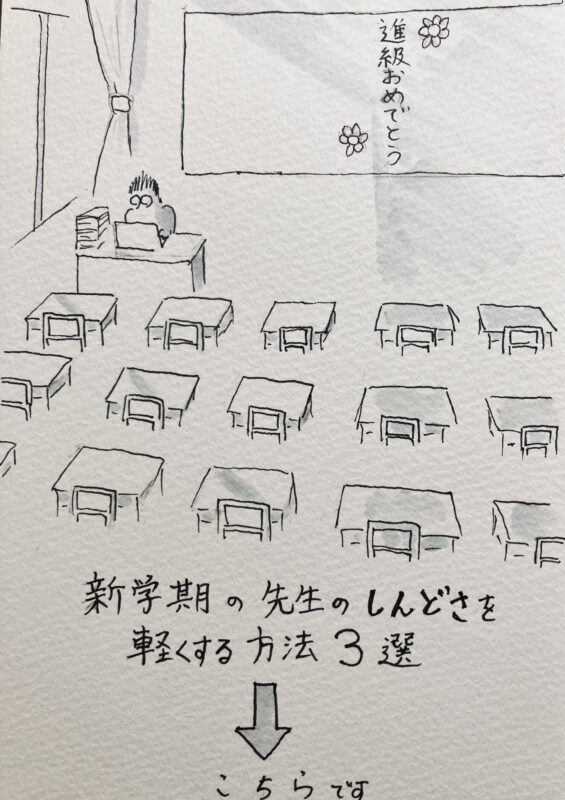 進級おめでとう
新学期の先生のしんどさを
軽くする方法3選
こちらです